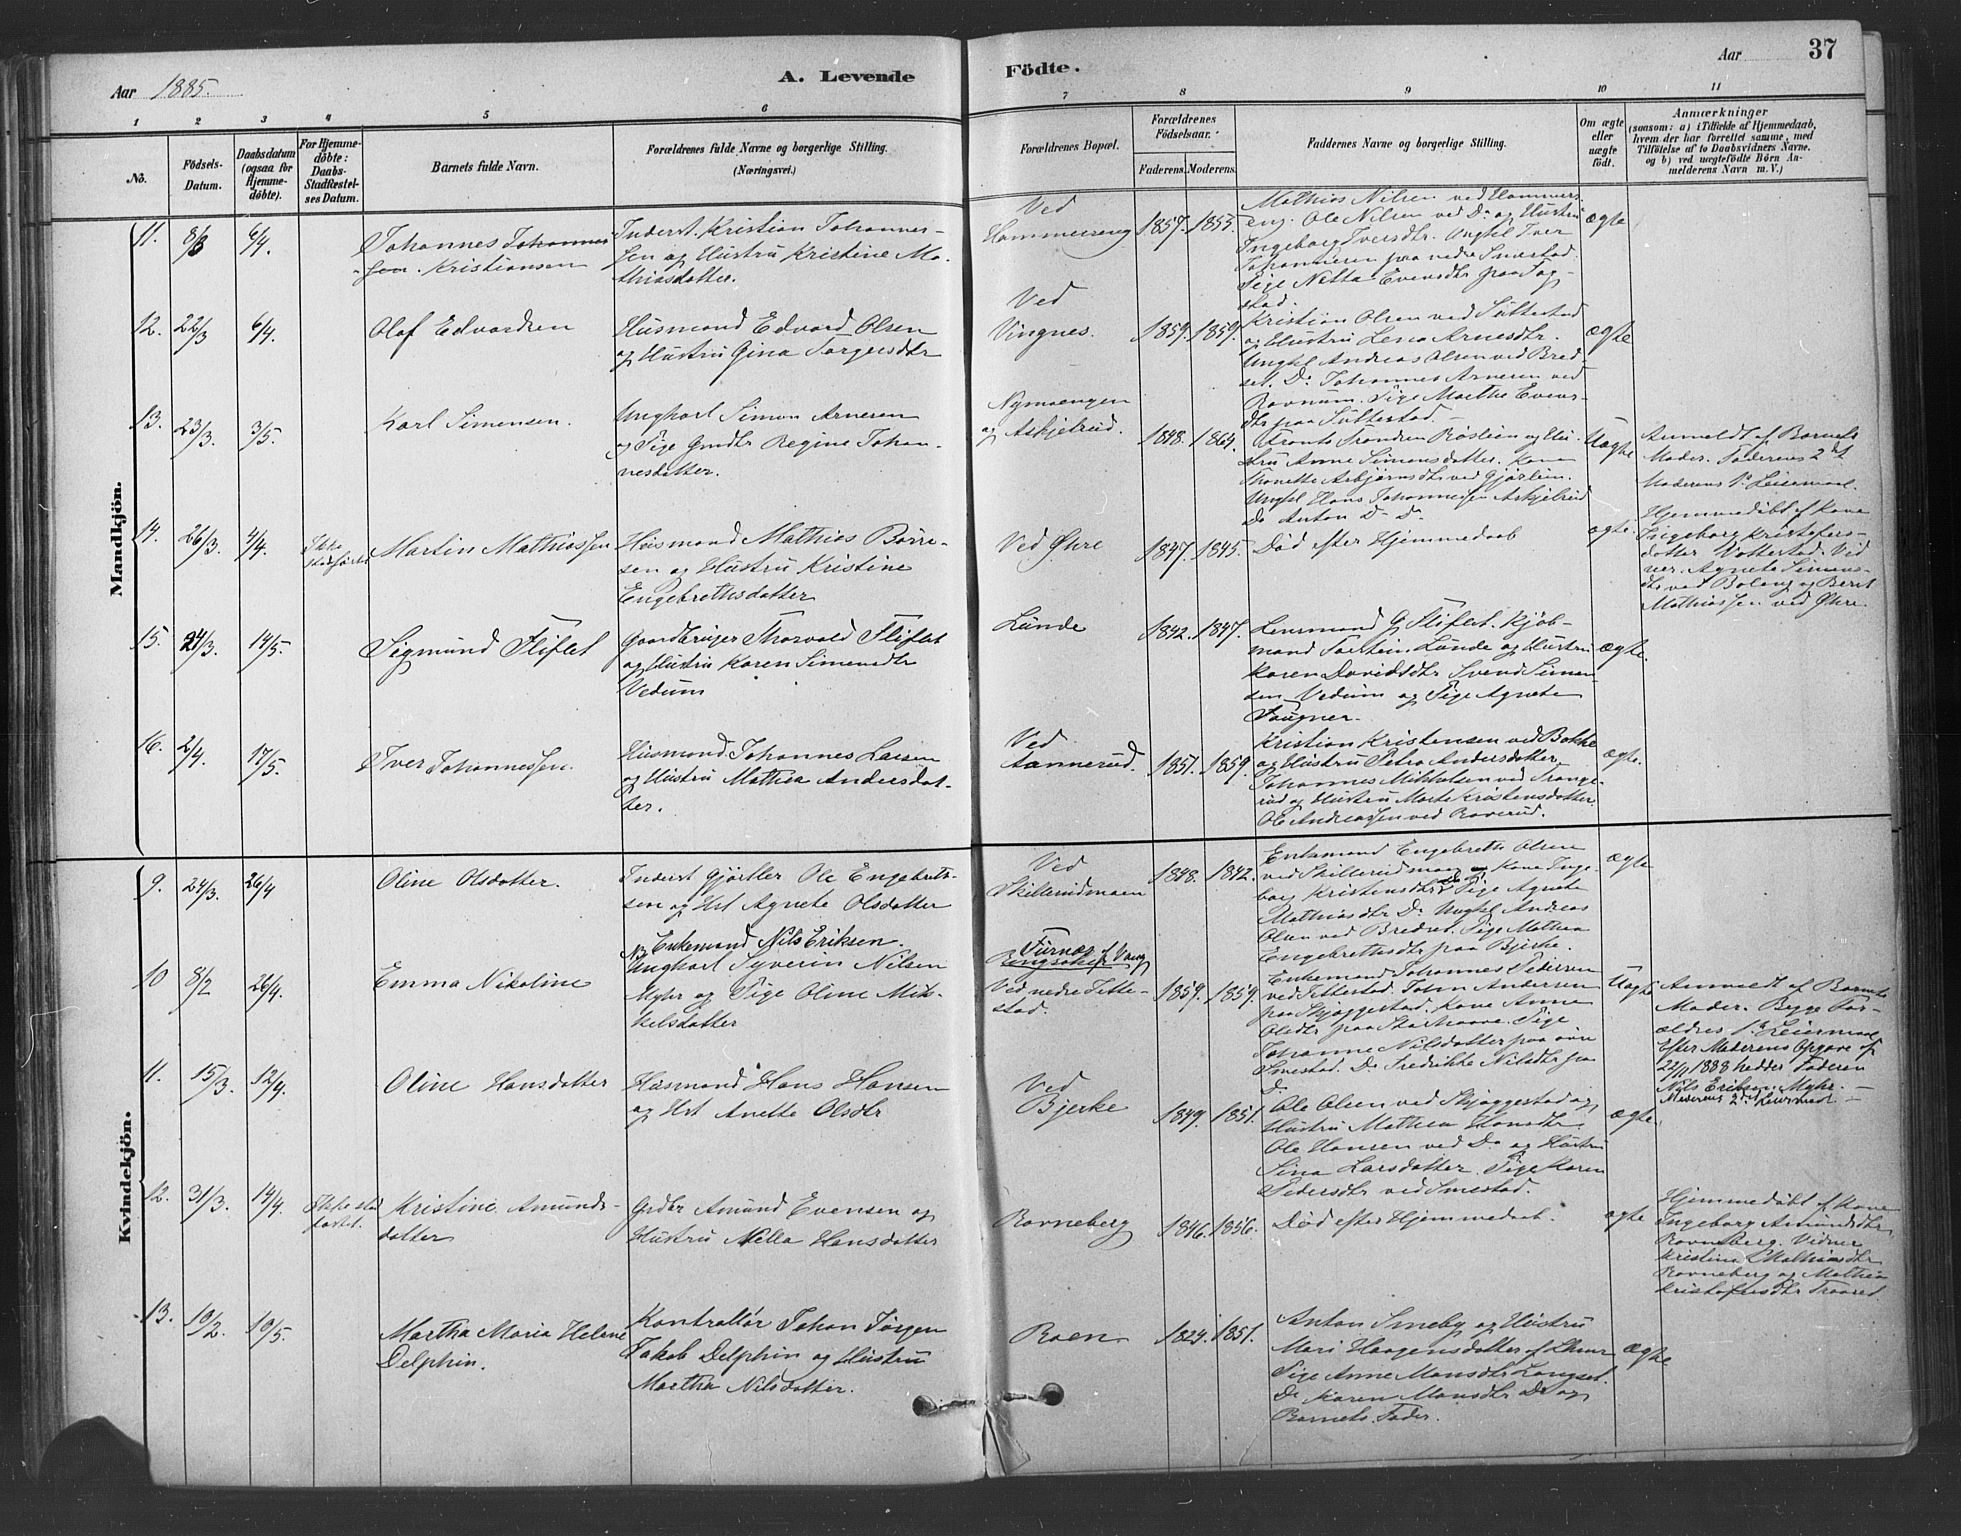 Aar 1885.
A. Levende
Födte.
Aar
37
1
2
3
4
5
6
7
8
9
10
11
No.
Födsels-
Datum.
Daabsdatum
(ogsaa for
Hjemme-
döbte).
For Hjemme-
döbte:
Daabs-
Stadfæstel-
ses Datum.
Barnets fulde Navn.
Forældrenes fulde Navne og borgerlige Stilling.
(Næringsvei.)
Forældrenes Bopæl.
Forældrenes
Födselsaar.
Faderens.
Moderens.
Faddernes Navne og borgerlige Stilling.
Om ægte
eller
uægte
födt.
Anmærkninger
(saasom: a) i Tilfælde af Hjemmedaab,
hvem der har forrettet samme, med
Tilföielse af to Daabsvidners Navne.
og b) ved uægtefödte Börn An-
melderens Navn m. V.)
Mandkjön.
11. 8/3 6/4.
Johannes Johannes-
sen. Kristiansen
Inderst. Kristian Johannes-
sen og Hustru Kristine Ma-
thiasdatter.
Ved
Hammerseng
1857. 1853.
Mathias Nilsen ved Hammers-
eng. Ole Nilsen ved Do og Hustru
Ingeborg Iversdtr. Ungkl Iver
Johannesen paa nedre Smestad
Pige Netta Evensdtr paa Fag-
stad.
ægte
12. 22/3 6/4.
Olaf Edvardsen
Husmand Edvard Olsen
og Hustru Gina Torgersdtr
Ved
Vingnes.
1859. 1859.
Kristian Olsen ved Suttestad
og Hustru Lena Arnesdtr.
Ungkl Andreas Olsen ved Bred-
set. Do Johannes Arnesen ved
Rovnum. Pige Marthe Evens-
dtr paa Suttestad.
ægte
13. 23/3. 3/5.
Karl Simensen.
Ungkarl Simon Arnesen
og Pige Grndtr Regine Johan-
nesdatter.
Nymoengen
og Askjelrud.
1848. 1864.
Hu-
stru Anne Simensdatter. Kone
Thonette Asbjørnsdtr ved Gjørlien.
Ungkl Hans Johannessen Askjelrud
Do Anton Do Do
Uægte
Anmeldt af Barnets
Moder. Faderens 2det
Moderens 1e Leiermaal.
14. 26/3. 4/4.
Ikke
stadfæstet
Martin Mathiassen
Husmand Mathias Børre-
sen og Hustru Kristine
Engebrethsdatter
Ved Øhre
1847. 1845.
Død efter Hjemmedaab
ægte.
Hjemmedøbt af Kone
Ingeborg Kristofers-
datter Nottestad. Vid-
ner. Agnete Simens-
dtr ved Boleng og Berit
Mathiassen ved Øhre
15. 24/3. 14/5.
Sigmund Fliflet
Gaardbruger Thorvald Fliflet
og Hustru Karen Simensdtr
Vedum
Lunde
1842. 1847.
Lensmand G Fliflet. Kjøb-
mand Torstein Lunde og Hustru
Karen Davidsdtr Svend Simen-
sen Vedum og Pige Agnete
Fougner.
ægte.
16. 2/4. 17/5.
Iver Johannessen.
Husmand Johannes Larsen
og Hustru Mathea Andersdat-
ter.
Ved
Aannerud.
1851. 1859.
Kristian Kristensen ved Bakke
og Hustru Petra Andersdatter.
Johannes Mikkelsen ved Trange-
rud og Hustru Marte Kristensdatter
Ole Andreassen ved Roverud.
ægte.
Kvindekjön.
9. 24/3. 26/4
Oline Olsdatter.
Inderst Gjørtler Ole Engebrets-
sen og Hst Agnete Olsdatter
Ved
Skillerudmoen
1848. 1842.
Enkemand Engebreth Olsen
ved Skillerudmoen og Kone Inge-
borg Kristensdtr Do Pige Agnete
Mathiasdtr Do Ungkl Andreas
Olsen ved Bredset. Pige Mathea
Engebrethsdtr paa Bjerke.
ægte
10 8/2 26/4.
Emma Nikoline
NB Enkemand Nils Eriksen.
Ungkarl Syverin Nilsen
Myhr og Pige Oline Mik-
kelsdatter
Furnæs af Vang
Ringsaker
Ved nedre Jette-
stad.
1859. 1859.
Enkemand Johannes Pedersen
ved Jettestad. John Andersen
paa Skjæggestad. Kone Anne
Olsdtr paa Storhaave. Pige
Johanne Nilsdatter paa øvre
Smestad. Do Fredrikke Nilsdtr paa
Do
Uægte
Anmeldt af Barnets
Moder. Begge For-
ældres 1e Leiermaal
Efter Moderens Opgave af
22/11 1888 hedder Faderen
Nils Eriksen Myhr.
Moderens 2det Leiermaal.
11. 15/3. 12/4.
Oline Hansdatter
Husmand Hans Hansen
og Hst Anette Olsdtr
Ved
Bjerke
1849. 1851.
Ole Olsen ved Skjæggestad og
Hustru Mathea Hansdtr
Ole Hansen ved Do og Hustru
Sina Larsdatter. Pige Karen
Pedersdtr ved Smestad.
ægte.
12. 31/3. 14/4.
Ikke stad-
fæstet.
Kristine Amunds-
datter
Grdbr Amund Evensen og
Hustru Mella Hansdatter
Rovneberg
1846. 1856.
Død efter Hjemmedaab.
ægte
Hjemmedøbt af Kone
Ingeborg Amundsdtr
Rovneberg. Vidner
Kristina Mathiasdtr
Rovneberg og Mathea
Kristofersdtr
13. 19/2. 10/5.
Martha Maria Helene
Delphin.
Kontrollør Johan Jørgen
Jakob Delphin og Hustru
Martha Nilsdatter.
Roen
1824. 1851.
Anton Smeby og Hustru
Mari Haagensdatter af Lhmr
Pige Anne Mansdtr Langset.
Do Karen Mansdtr Do og
Barnets Fader.
ægte